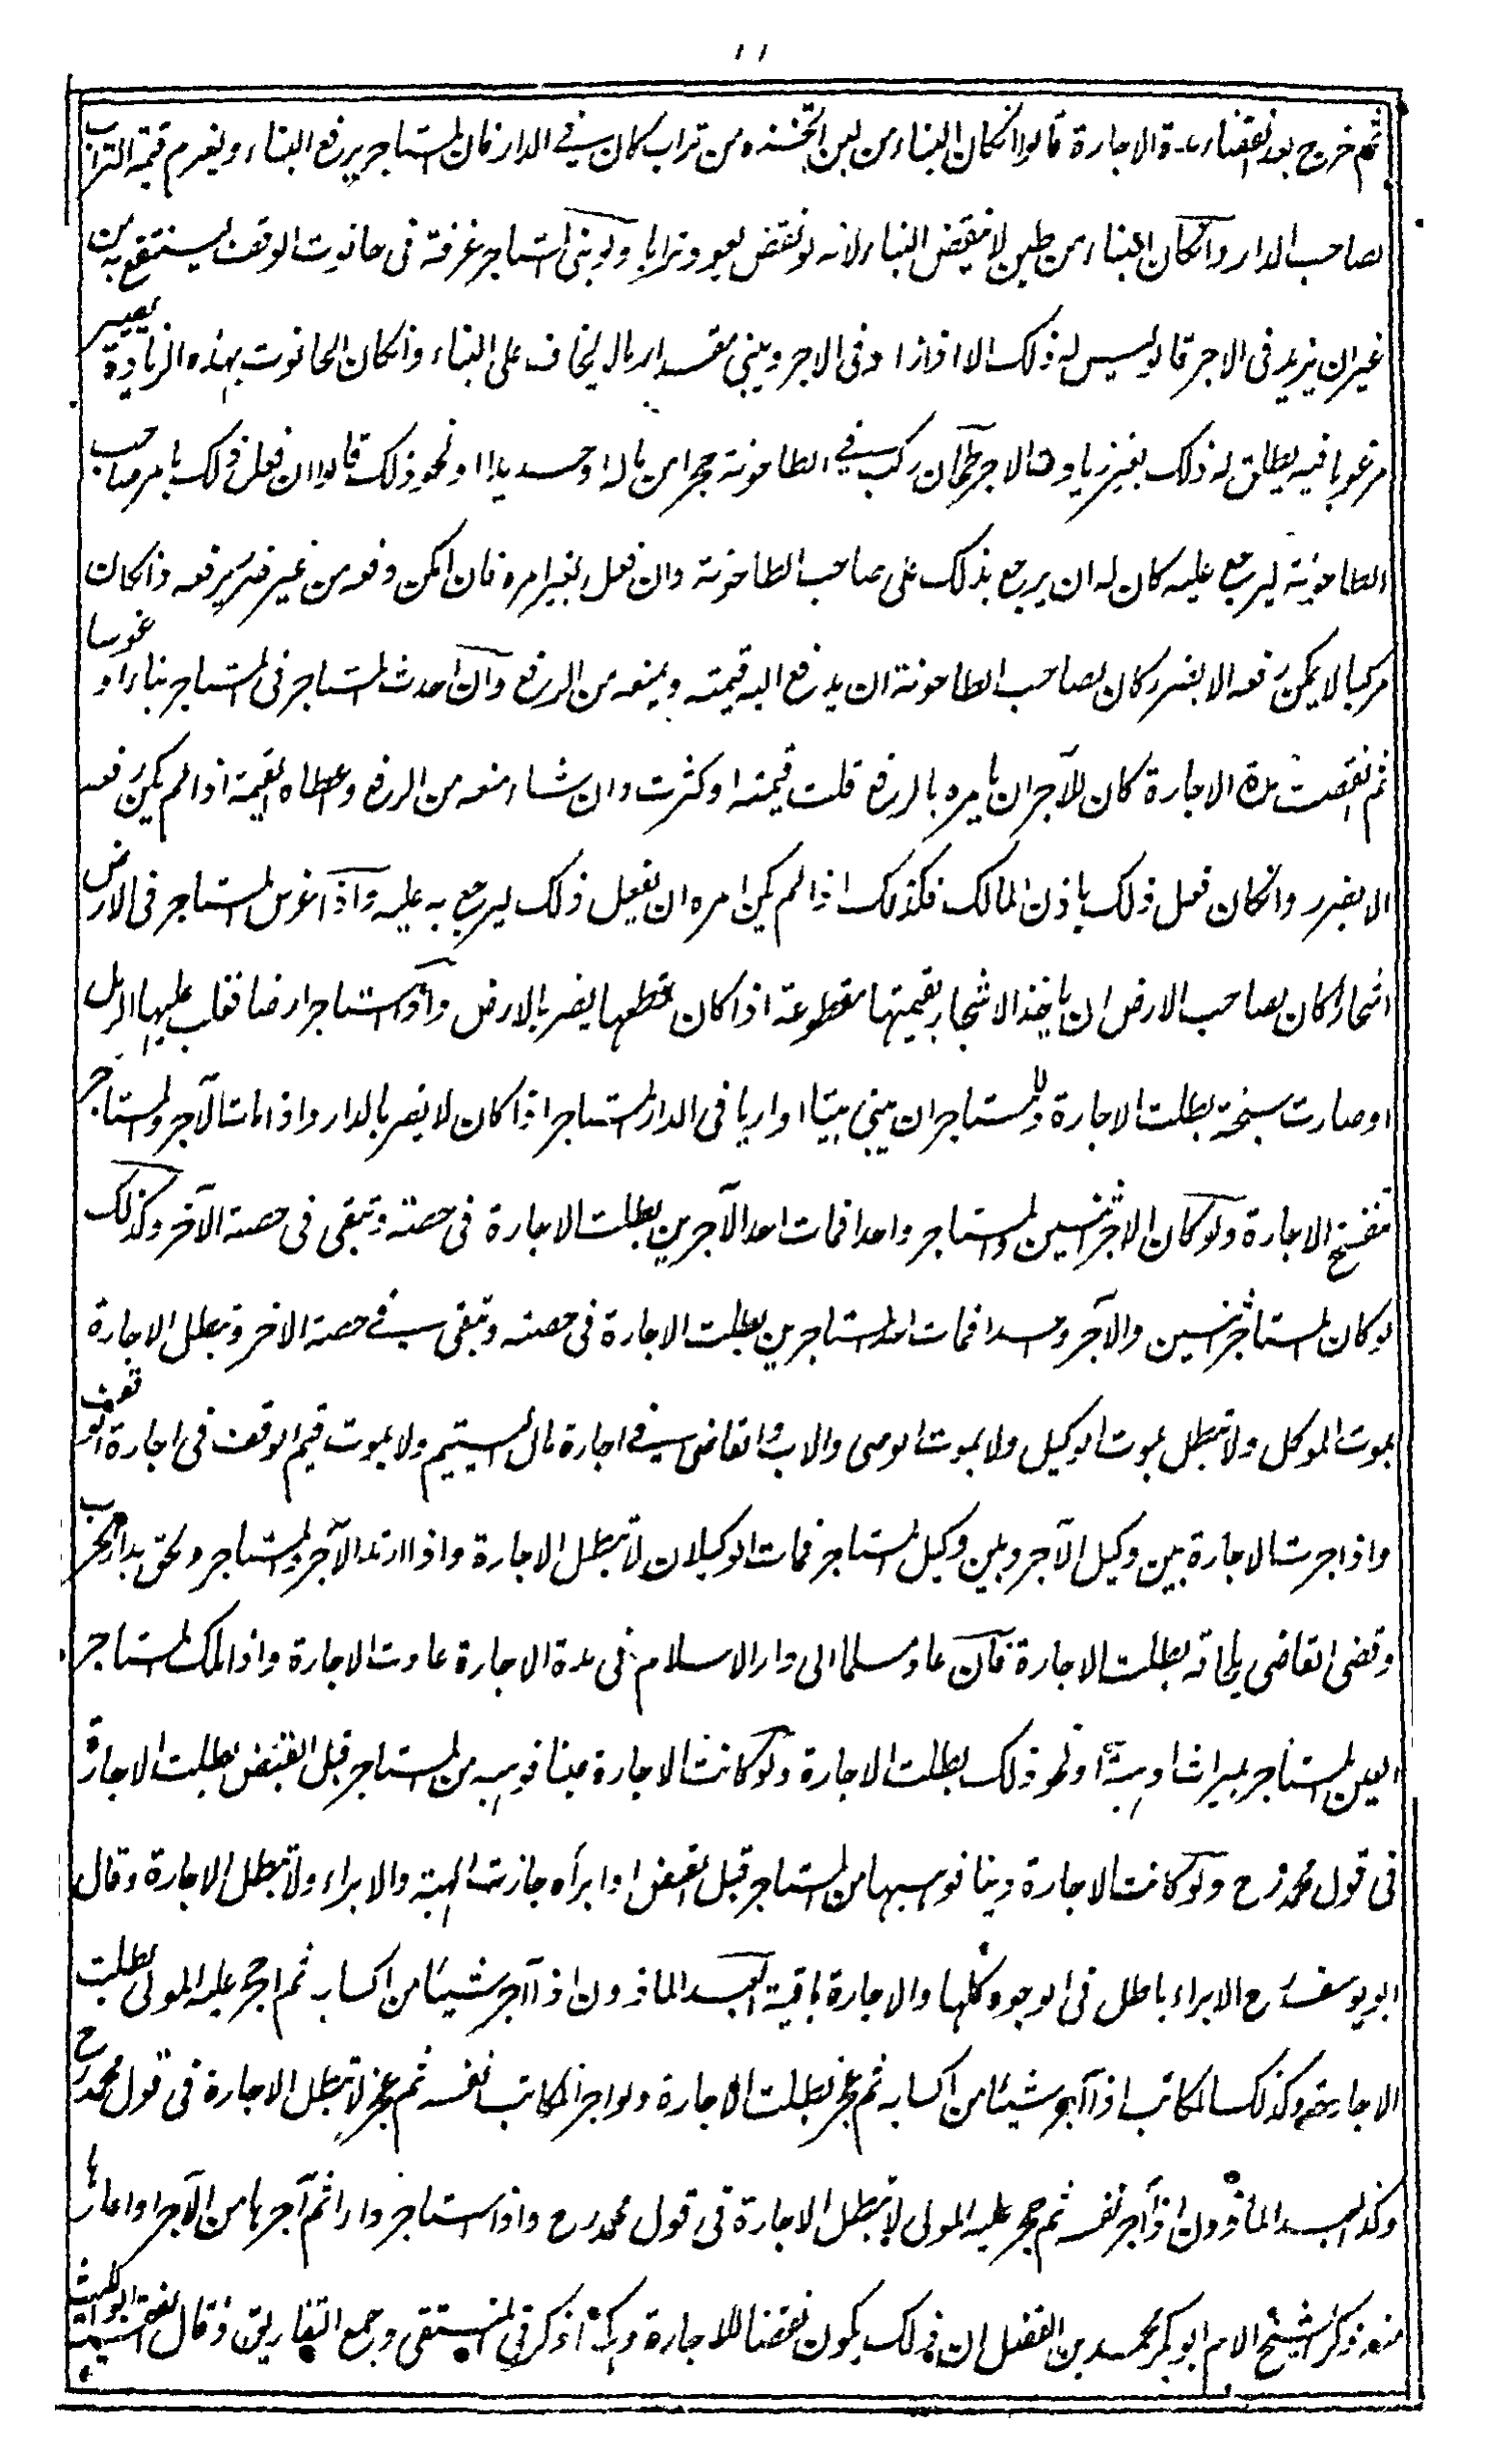 ١١
ثم خرج بعد انقضاء مدة الاجارة قالوا انكان البناء من لبن اتخذه من تراب كان في الدار فان المستاجر يرفع البناء ويغرم قيمة التراب
لصاحب الدار وانكان البناء من طين لا ينقض البناء لانه لو نقض يعود ترابا ولو بنى المستاجر غرفة فى حانوت الوقف لينتفع به من
غير ان يزيد فى الاجر قالوا ليس له ذلك الا اذا زاد فى الاجر ويبنى مقدار ما لا يخاف على البناء وانكان الحانوت بهذه الزيادة يصير
مرغوبا فيه يطلق له ذلك بغير زيادة الاجر طحان ركب في الطاحونة حجرا من ماله او حديدا او نحو ذلك قالوا ان فعل ذلك بامر صاحب
الطاحونة ليرجع عليه كان له ان يرجع بذلك على صاحب الطاحونة وان فعل بغير امره فان امكن رفعه من غير ضرر يرفعه وانكان
مركبا لا يمكن رفعه الا بضرر كان لصاحب الطاحونة ان يدفع اليه قيمته ويمنعه من الرفع وان احدث المستاجر فى المستاجر بناء او غرسا
ثم انقضت مدة الاجارة كان للآجر ان يامره بالرفع قلت قيمته او كثرت وان شاء منعه من الرفع واعطاه القيمة اذا لم يمكن رفعه
الا بضرر وانكان فعل ذلك باذن المالك فكذلك اذا لم يكن امره ان يفعل ذلك ليرجع به عليه واذا غرس المستاجر فى الارض
اشجارا كان لصاحب الارض ان ياخذ الاشجار بقيمتها مقطوعة اذا كان قطعها يضر بالارض واذا استاجر ارضا فغلب عليها الرمل
او صارت سبخة بطلت الاجارة وللمستاجر ان يبنى بيتا او اريا فى الدار المستاجر اذا كان لا يضر بالدار واذا مات الآجر والمستاجر
تنفسخ الاجارة ولو كان الآجر اثنين والمستاجر واحدا فمات احد الآجرين بطلت الاجارة فى حصته وتبقى فى حصة الآخر وكذلك
لو كان المستاجر اثنين والآجر واحدا فمات احد المستاجرين بطلت الاجارة فى حصته وتبقى في حصة الاخر وتبطل الاجارة
بموت الموكل ولا تبطل بموت الوكيل ولا بموت الوصى والاب والقاضى في اجارة مال اليتيم ولا بموت قيم الوقف فى اجارة الوقف
واذا جرت الاجارة بين وكيل الآجر وبين وكيل المستاجر فمات الوكيلان لا تبطل الاجارة واذا ارتد الآجر والمستاجر ولحق بدار الحرب
وقضى القاضى بلحاقه بطلت الاجارة فان عاد مسلما الى دار الاسلام فى مدة الاجارة عادت الاجارة واذا ملك المستاجر
العين المستاجر بميراث او هبة او نحو ذلك بطلت الاجارة ولو كانت الاجارة عينا فوهبه من المستاجر قبل القبض بطلت الاجارة
فى قول محمد رح ولو كانت الاجارة دينا فوهبها من المستاجر قبل القبض او ابرأه جازت الهبة والابراء ولا تبطل الاجارة وقال
ابو يوسف رح الابراء باطل فى الوجوه كلها والاجارة باقية العبد الماذون اذا آجر شيئا من اكسابه ثم احجر عليه المولى بطلت
الاجارة وكذلك المكاتب اذا آجر شيئا من اكسابه ثم عجز بطلت الاجارة ولو اجر المكاتب نفسه ثم عجز لا تبطل الاجارة فى قول محمد رح
وكذا العبد الماذون اذا آجر نفسه ثم حجر عليه المولى لا تبطل الاجارة فى قول محمد رح واذا استاجر دارا ثم آجرها من الآجر او اعارها
منه ذكر الشيخ الامام ابو بكر محمد بن الفضل ان ذلك يكون نقضا للاجارة وهكذا ذكر فى المنتقى وجمع التفاريق وقال الفقيه ابو الليث